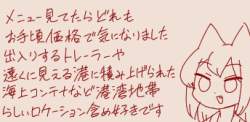 メニュー見てたらどれも
お手頃価格で気になりました
出入りするトレーラーや
遠くに見える港に積み上げられた
海上コンテナなど港湾地帯
らしいロケーション含め好きです